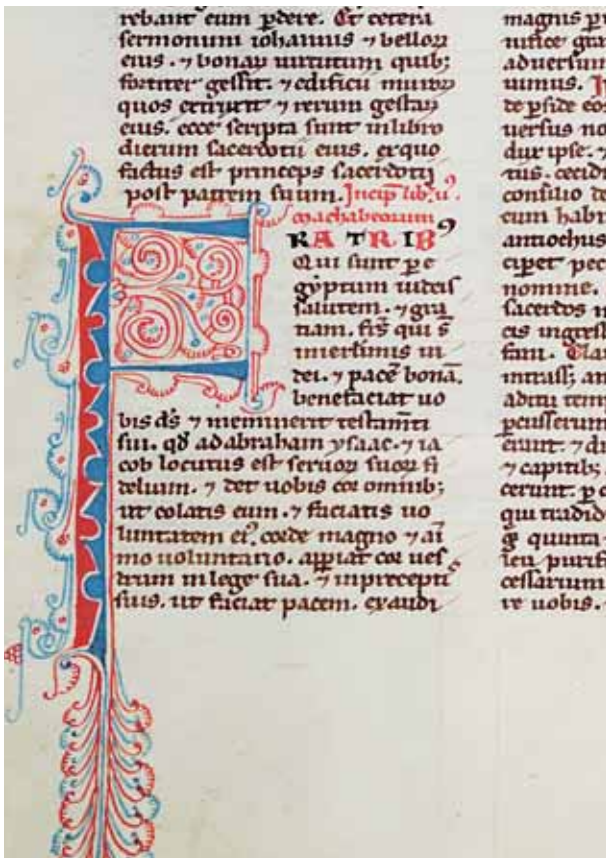 rebant eum ꝑdere. Et cetera
sermonum iohannis ⁊ belloꝝ
eius. ⁊ bonaꝝ uirtutum quib;
fortiter gessit. ⁊ edificii muroꝝ
quos extruxit ⁊ rerum gestaꝝ
eius. ecce scripta sunt in libro
dierum sacerdotii eius. ex quo
factus est princeps sacerdotū
post patrem suum. Incip̄ lib̾ ıı᷒.
machabeorum
FRATRIBꝰ
Qui sunt ꝑ e
gyptum iudeis
salutem. ⁊ gra
tiam. fr̄s qui s̄
ierosolimis iu
dei. ⁊ pacē bonā.
benefaciat uo
bis d̄s ⁊ meminerit testam̄ti
sui. qd̄ ad abraham ysaac. ⁊ ia
cob locutus est seruoꝝ suoꝝ fi
delium. ⁊ det uobis cor omnib;
ut colatis eum. ⁊ faciatis uo
luntatem eiꝰ. corde magno ⁊ ai
mo voluntario. apꝑiat cor ues
trum in lege sua. ⁊ in preceptis
suis. ut faciat pacem. exaudi
magnis
nifice
aduersum
uimus.
de ꝑside
uersus
dux ipse.
tus. cecidi
consilio
cum
antiochus
nomine.
sacerdos
cis
fani.
aditu
ꝑcusserunt
⁊ capitib;
cerunt.
qui
quinta
cessarium
re uobis.